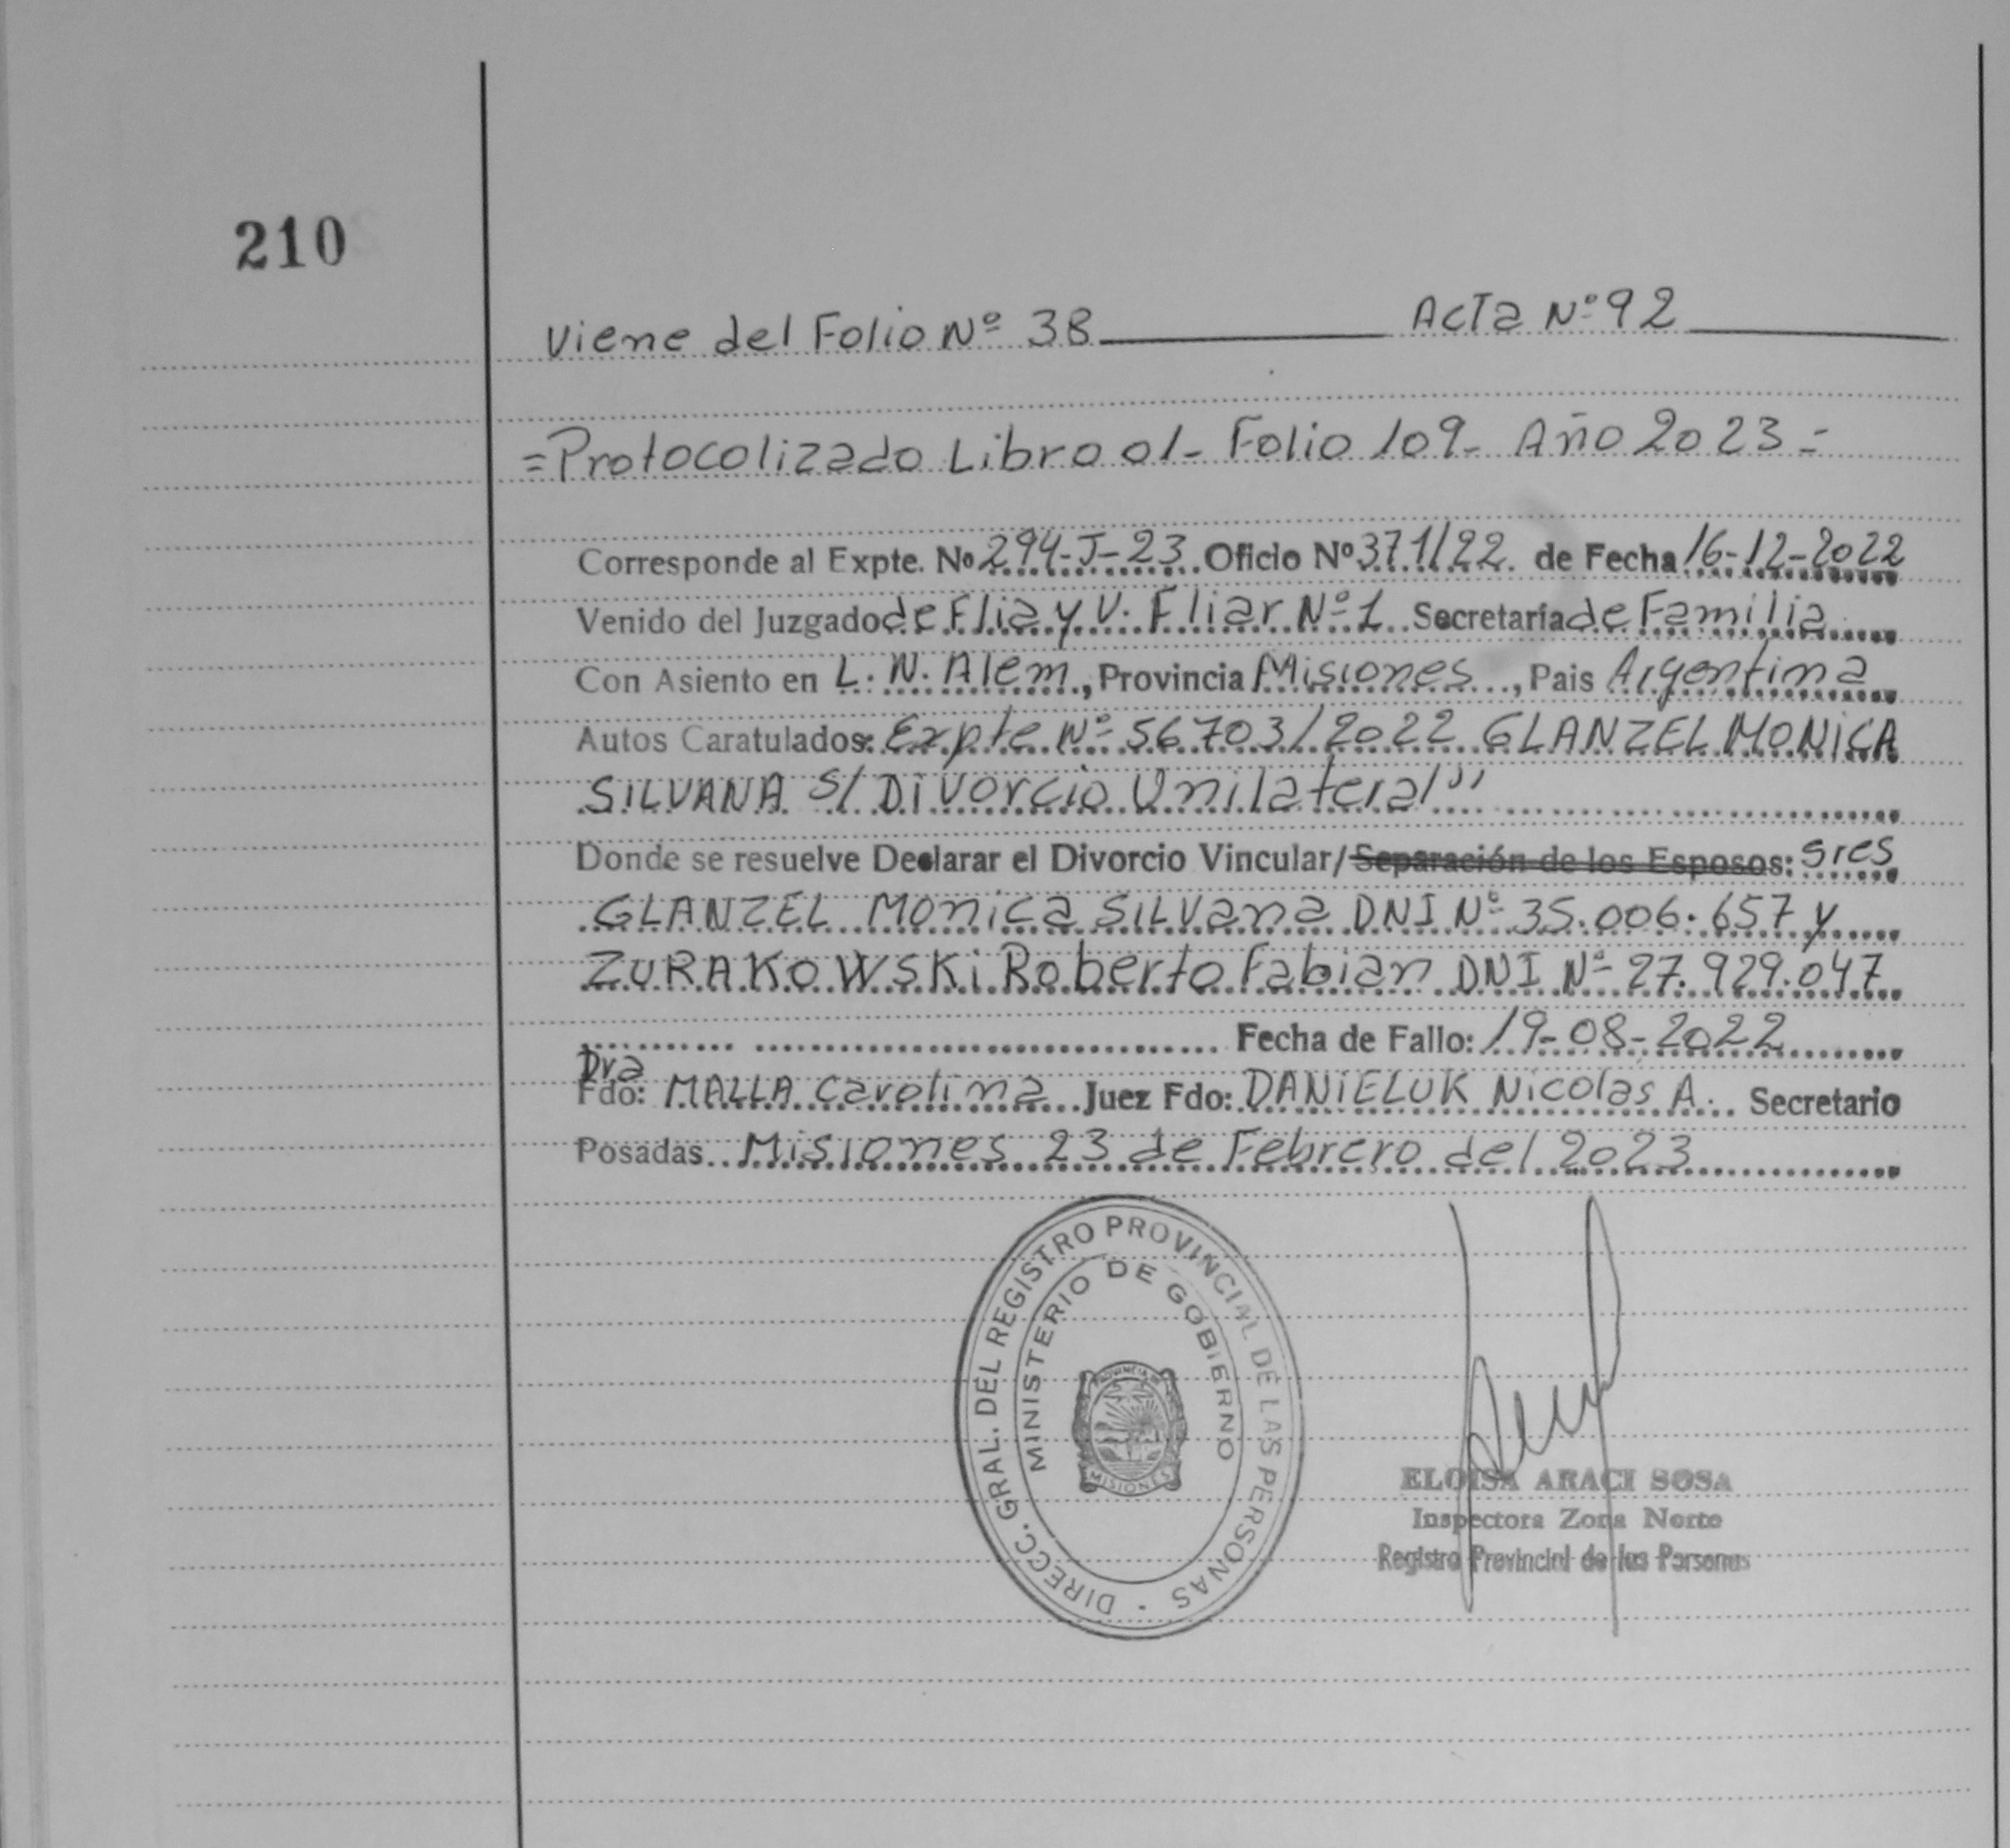 210
Viene del Folio Nº 38 ACTA Nº 92
=Protocolizado Libro 01- Folio 109- Año 2023=
Corresponde al Expte. Nº 294-J-23 Oficio Nº 371/22 de Fecha 16-12-2022
Venido del Juzgado de Flia y V. Fliar Nº 1 Secretaría de Familia
Con Asiento en L. N. Alem, Provincia Misiones, Pais Argentina
Autos Caratulados: Expte Nº 56703/2022 GLANZEL MONICA
SILVANA S/ Divorcio Unilateral"
Donde se resuelve Declarar el Divorcio Vincular/Separación de los Esposos: Sres
GLANZEL Monica SILVana DNI Nº 35.006.657 y
ZURAKOWSKi Roberto Fabian DNI Nº 27.929.047
Fecha de Fallo: 19-08-2022
Dra
Fdo: MALLA Carolina Juez Fdo: DANIELUK Nicolas A. Secretario
Posadas Misiones 23 de Febrero del 2023
DIRECC. GRAL. DEL REGISTRO PROVINCIAL DE LAS PERSONAS
MINISTERIO DE GOBIERNO
MISIONES
ELOISA ARACI SOSA
Inspectora Zona Norte
Registro Provincial de las Personas